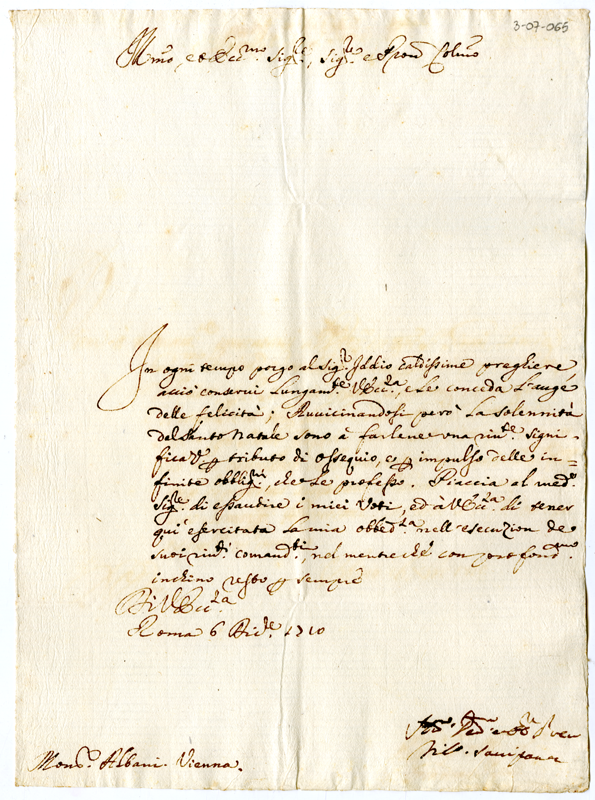 3-07-065
Illmo, e Ecc.mo Sig.re, Sig.re e Pron Colmo
In ogni tempo porgo al Sig.r Iddio caldissime preghiere
acciò conservi Lungam.te V. Ecc.za, e Le conceda L'auge
delle felicità; Avvicinandosi però La solennità
del Santo Natale sono à farlene una riv.te signi-
ficaz.ne p tributo di ossequio, e p impulso delle in=
finite obblig.ni, che Le professo. Piaccia al med.mo
Sig.re di esaudire i miei Voti, ed à V. Ecc.za di tener
quì esercitata La mia obbed.za nell'esecuzion de
suoi riv.ti comand.ti, nel mentre che con profond.mo
inchino resto p sempre
Di V. Ecc.za
Roma 6 Dic.e 1710
Mons.r Albani. Vienna.